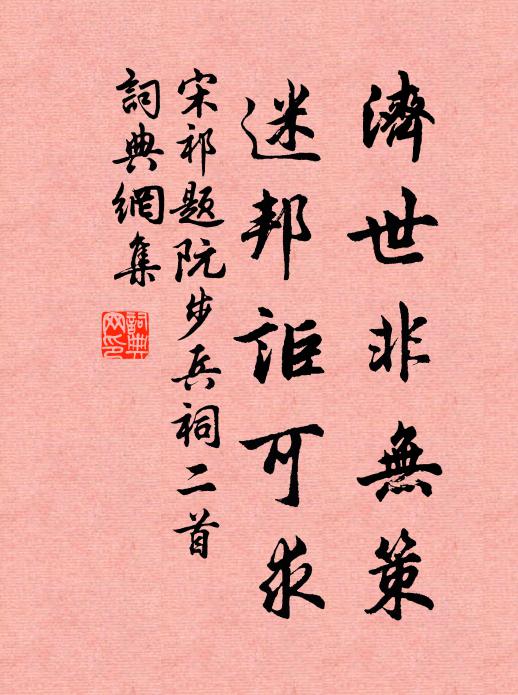 濟世非無策
迷邦詎可求
宋祁題阮步兵祠二首
詞典網集
詞典網印